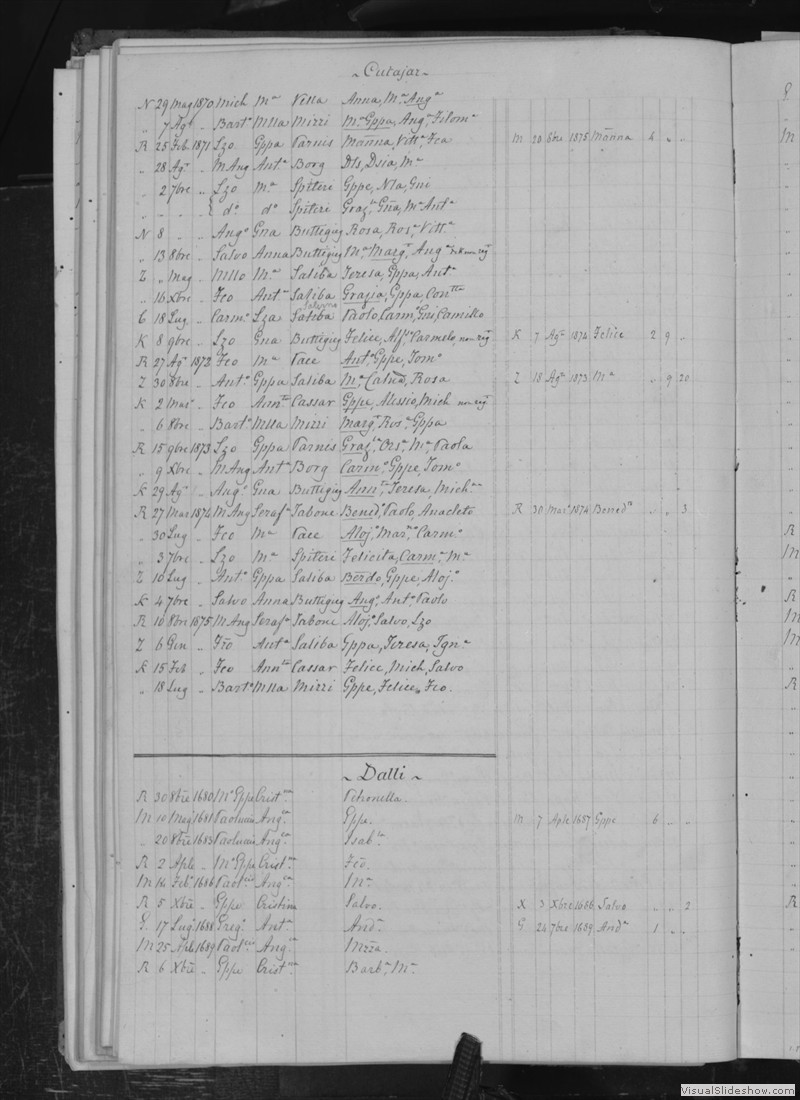 ~ Cutajar ~
N 29 Mag 1870 Mich Mª Villa Anna, Mª Angª
„ 7 Agº „ Bartº Mlla Mizzi Mª Gppa, Angª, Filomª
R 25 Feb 1871 Lzo Gppa Farnis Mãnna, Vittª, Fca M 20 6bre 1875 Mãnna 4 „ „
„ 28 Agº „ M Ang Antª Borg Dts, Dsia, Mª
„ 2 7bre „ Lzo Mª Spiteri Gppe, Nla, Gni
„ „ „ „ { dº dº Spiteri Grazia, Gña, Mª Antª
N 8 „ „ Angº Gna Buttigieg Rosa, Rosª, Vittª
„ 13 8bre „ Salvo Anna Buttigieg Mª, Margª, Angª
Z „ Mag „ Mllo Mª Saliba Teresa, Gppa, Antª
„ 16 Xbre „ Fco Antª Saliba Grazia, Gppa, Contta
6 18 Lug „ Carmº Lza Saliba Paolo, Carm, Gni, Camillo
K 8 9bre „ Lzo Gna Buttigieg Felice, Alfº, Carmelo, non reg K 7 Agº 1874 Felice 2 9 „
R 27 Agº 1872 Fco Mª Pace Antº, Gppe, Tomº
Z 30 8bre „ Antº Gppa Saliba Mª, Catna, Rosa Z 18 Agº 1873 Mª „ 9 20
K 2 Mar „ Fco Annta Cassar Gppe, Alessio, Mich non reg
„ 6 8bre „ Bartº Mlla Mizzi Margª, Rosª, Gppa
R 15 9bre 1873 Lzo Gppa Farnis Grazia, Orsª, Mª, Paola
„ 9 Xbre „ M Ang Antª Borg Carmº, Gppe, Tomº
K 29 Agº „ Angº Gna Buttigieg Annta, Teresa, Mich
R 27 Mar 1874 M Ang Serafª Tabone Benedº, Paolo, Anacleto R 30 Marº 1874 Benedº „ „ 3
„ 30 Lug „ Fco Mª Pace Alojº, Mar, Carmº
„ 3 7bre „ Lzo Mª Spiteri Felicita, Carmª, Mª
Z 10 Lug „ Antº Gppa Saliba Berdo, Gppe, Alojº
K 4 7bre „ Salvo Anna Buttigieg Angº, Antº, Paolo
R 10 8bre 1875 M Ang Serafª Tabone Alojº, Salvo, Lzo
Z 6 Gen „ Fco Antª Saliba Gppa, Teresa, Ignª
K 15 Feb „ Fco Annta Cassar Felice, Mich, Salvo
„ 18 Lug „ Bartº Mlla Mizzi Gppe, Felice, Fco.
~ Dalli ~
R 30 8bre 1680 Mº Gppe Cristna Petronella.
M 10 Mag 1681 Angca Gppe. M 7 Aple 1687 Gppe 6 „ „
„ 20 8bre 1683 Angca Isabla
R 2 Aple „ Mº Gppe Cristna Fco.
M 14 Febº 1686 Angca Mª
R 5 Xbre „ Gppe Cristina Salvo. X 3 Xbre 1686 Salvo „ „ 2
G. 17 Lugº 1688 Gregº Antª Andª G 24 7bre 1689 Andª 1 „ „
M 25 Aple 1689 Angca Mzza.
R 6 Xbre „ Gppe Cristna Barbª Mª
VisualSlideshow.com